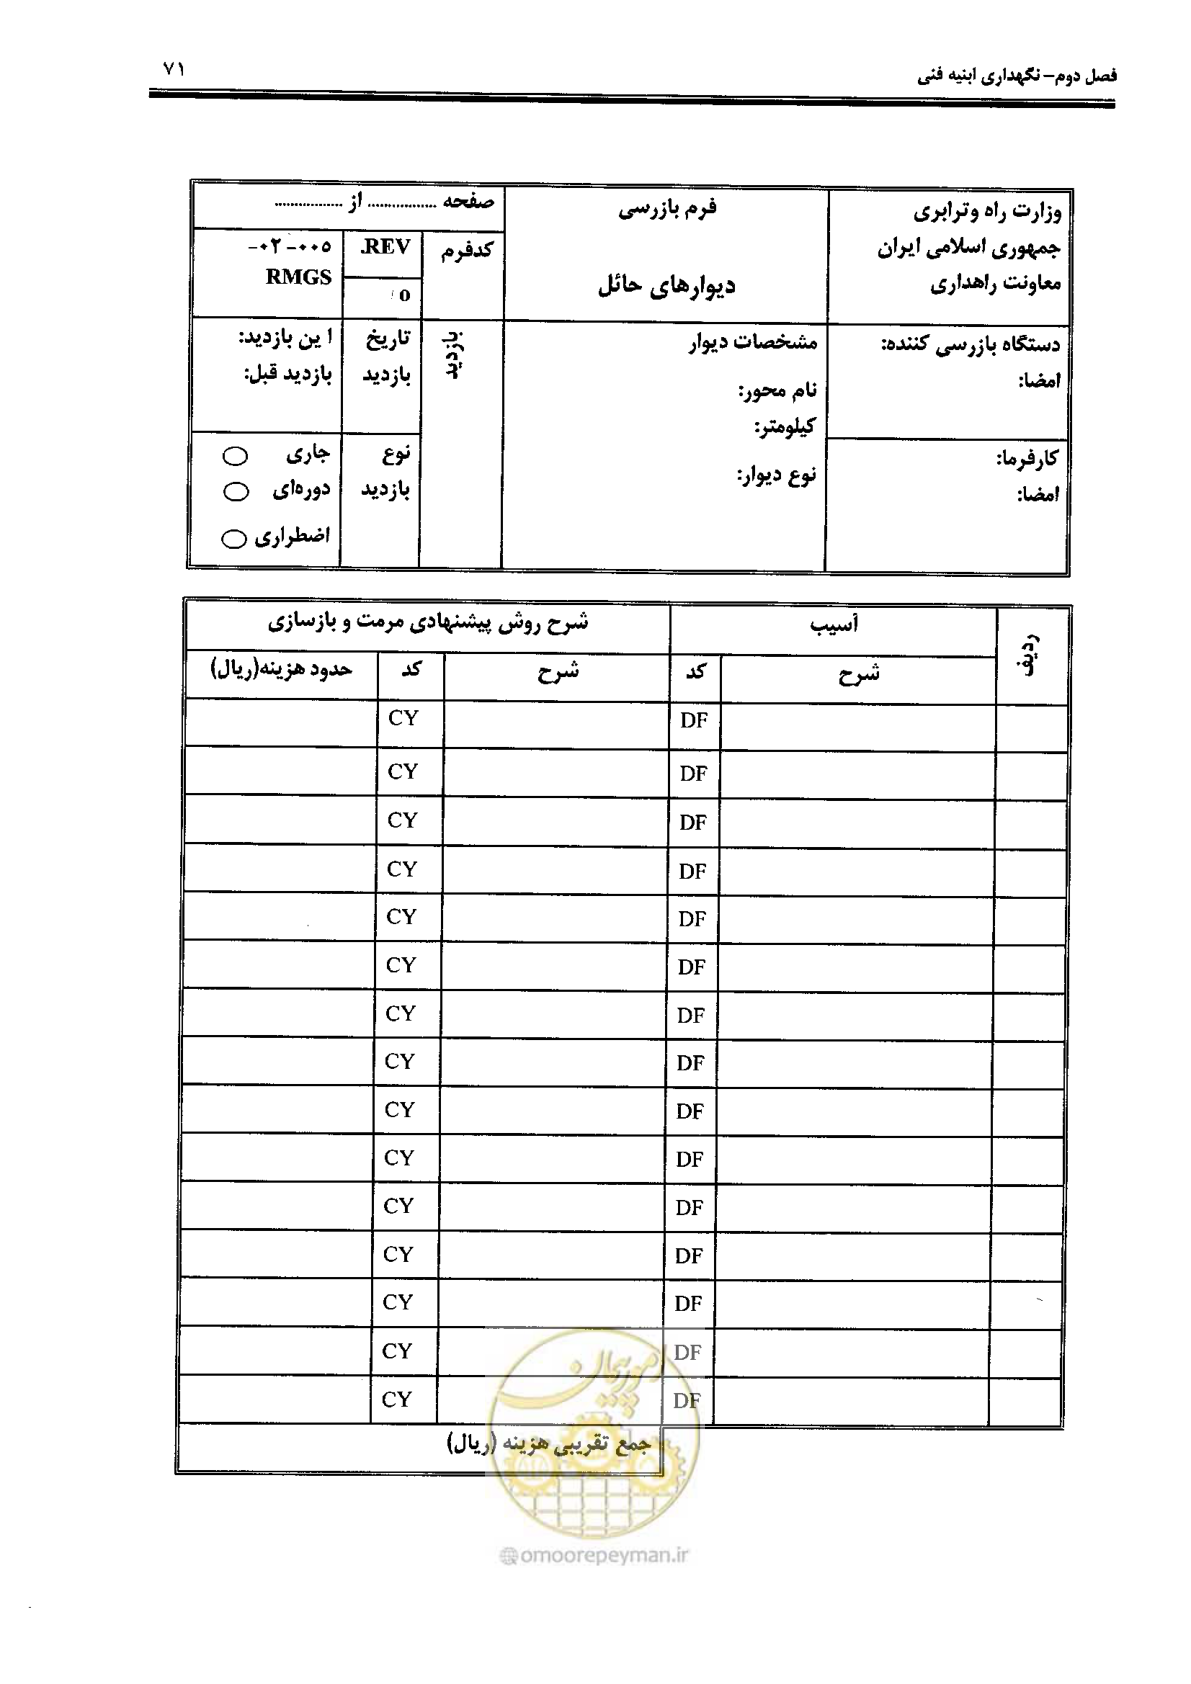 فصل دوم– نگهداری ابنیه فنی
۷۱
وزارت راه وترابری
جمهوری اسلامی ایران
معاونت راهداری
فرم بازرسی
دیوارهای حائل
صفحه ................ از ................
کدفرم
REV.
۰
۰۰۵- ۰۲-
RMGS
دستگاه بازرسی کننده:
امضا:
کارفرما:
امضا:
مشخصات دیوار
نام محور:
کیلومتر:
نوع دیوار:
بازدید
تاریخ
بازدید
ا ین بازدید:
بازدید قبل:
نوع
بازدید
جاری
دوره‌ای
اضطراری
ردیف
آسیب
شرح روش پیشنهادی مرمت و بازسازی
شرح
کد
شرح
کد
حدود هزینه(ریال)
DF CY
DF CY
DF CY
DF CY
DF CY
DF CY
DF CY
DF CY
DF CY
DF CY
DF CY
DF CY
DF CY
DF CY
DF CY
جمع تقریبی هزینه (ریال)
امور پیمان
@omoorepeyman.ir